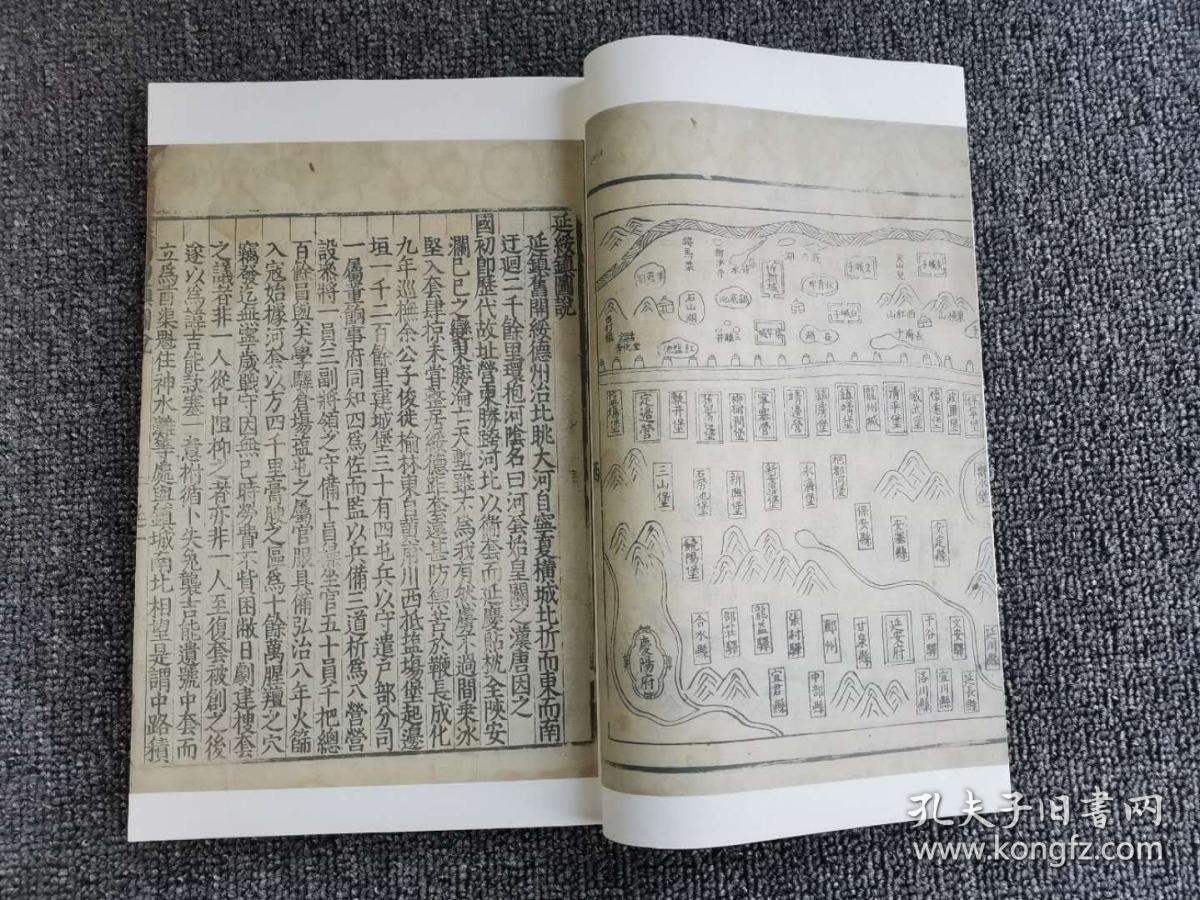 延綏鎮圖說
延鎮舊開綏德州治北眺大河自寧夏橫城北折而東而南
迂迴二千餘里環抱河陰名曰河套始皇闢之漢唐因之
國初即歷代故址營東勝跨河北以衛套而延慶貼枕全陝安
瀾已巳之變東勝淪亡天塹雖不為我有然虜不過間乗冰
堅入套肆椋未嘗盤居綏德距套遠甚防禦苦於鞭長成化
九年巡撫余公子俊徙榆林東自黃甫川西抵鹽場堡起邊
垣一千二百餘里建城堡三十有四屯兵以守遣戶部分司
一屬董餉事府同知四為佐而監以兵備二道析為八營營
設叅將一員三副將領之守備十員坐官五十員千把總
百餘員與夫學驛倉場鹽屯之屬官服具備弘治八年火篩
入寇始據河套以方四千里膏腴之區為十餘萬腥羶之穴
竊發迄無寧歲戰守因無已時勞費不貲困敝日劇建復套
之議者非一人從中阻抑之者亦非一人至復套被創之後
遂以為諱吉能款塞一意拊循卜失兔襲吉能遺號中套而
立為酋渠魁住神水灘等處與鎮城南北相望是謂中路積
近賀城
石山湖
鍋底池
紅鹽池
長湖
西紅山
定邊營
磚井堡
舊安邊堡
柳樹澗堡
寧塞營
靖邊營
鎮羅堡
鎮靖堡
龍州城
清平堡
威武堡
懷遠堡
波羅堡
三山堡
石澇池堡
新興堡
永濟堡
把都河堡
饒陽堡
保安縣
安塞縣
安定縣
合水縣
邵莊驛
張村驛
鄜州
甘泉縣
延安府
干谷驛
文安驛
延川縣
慶陽府
宜君縣
中部縣
洛川縣
宜川縣
延長縣
孔夫子旧書网
www.kongfz.com